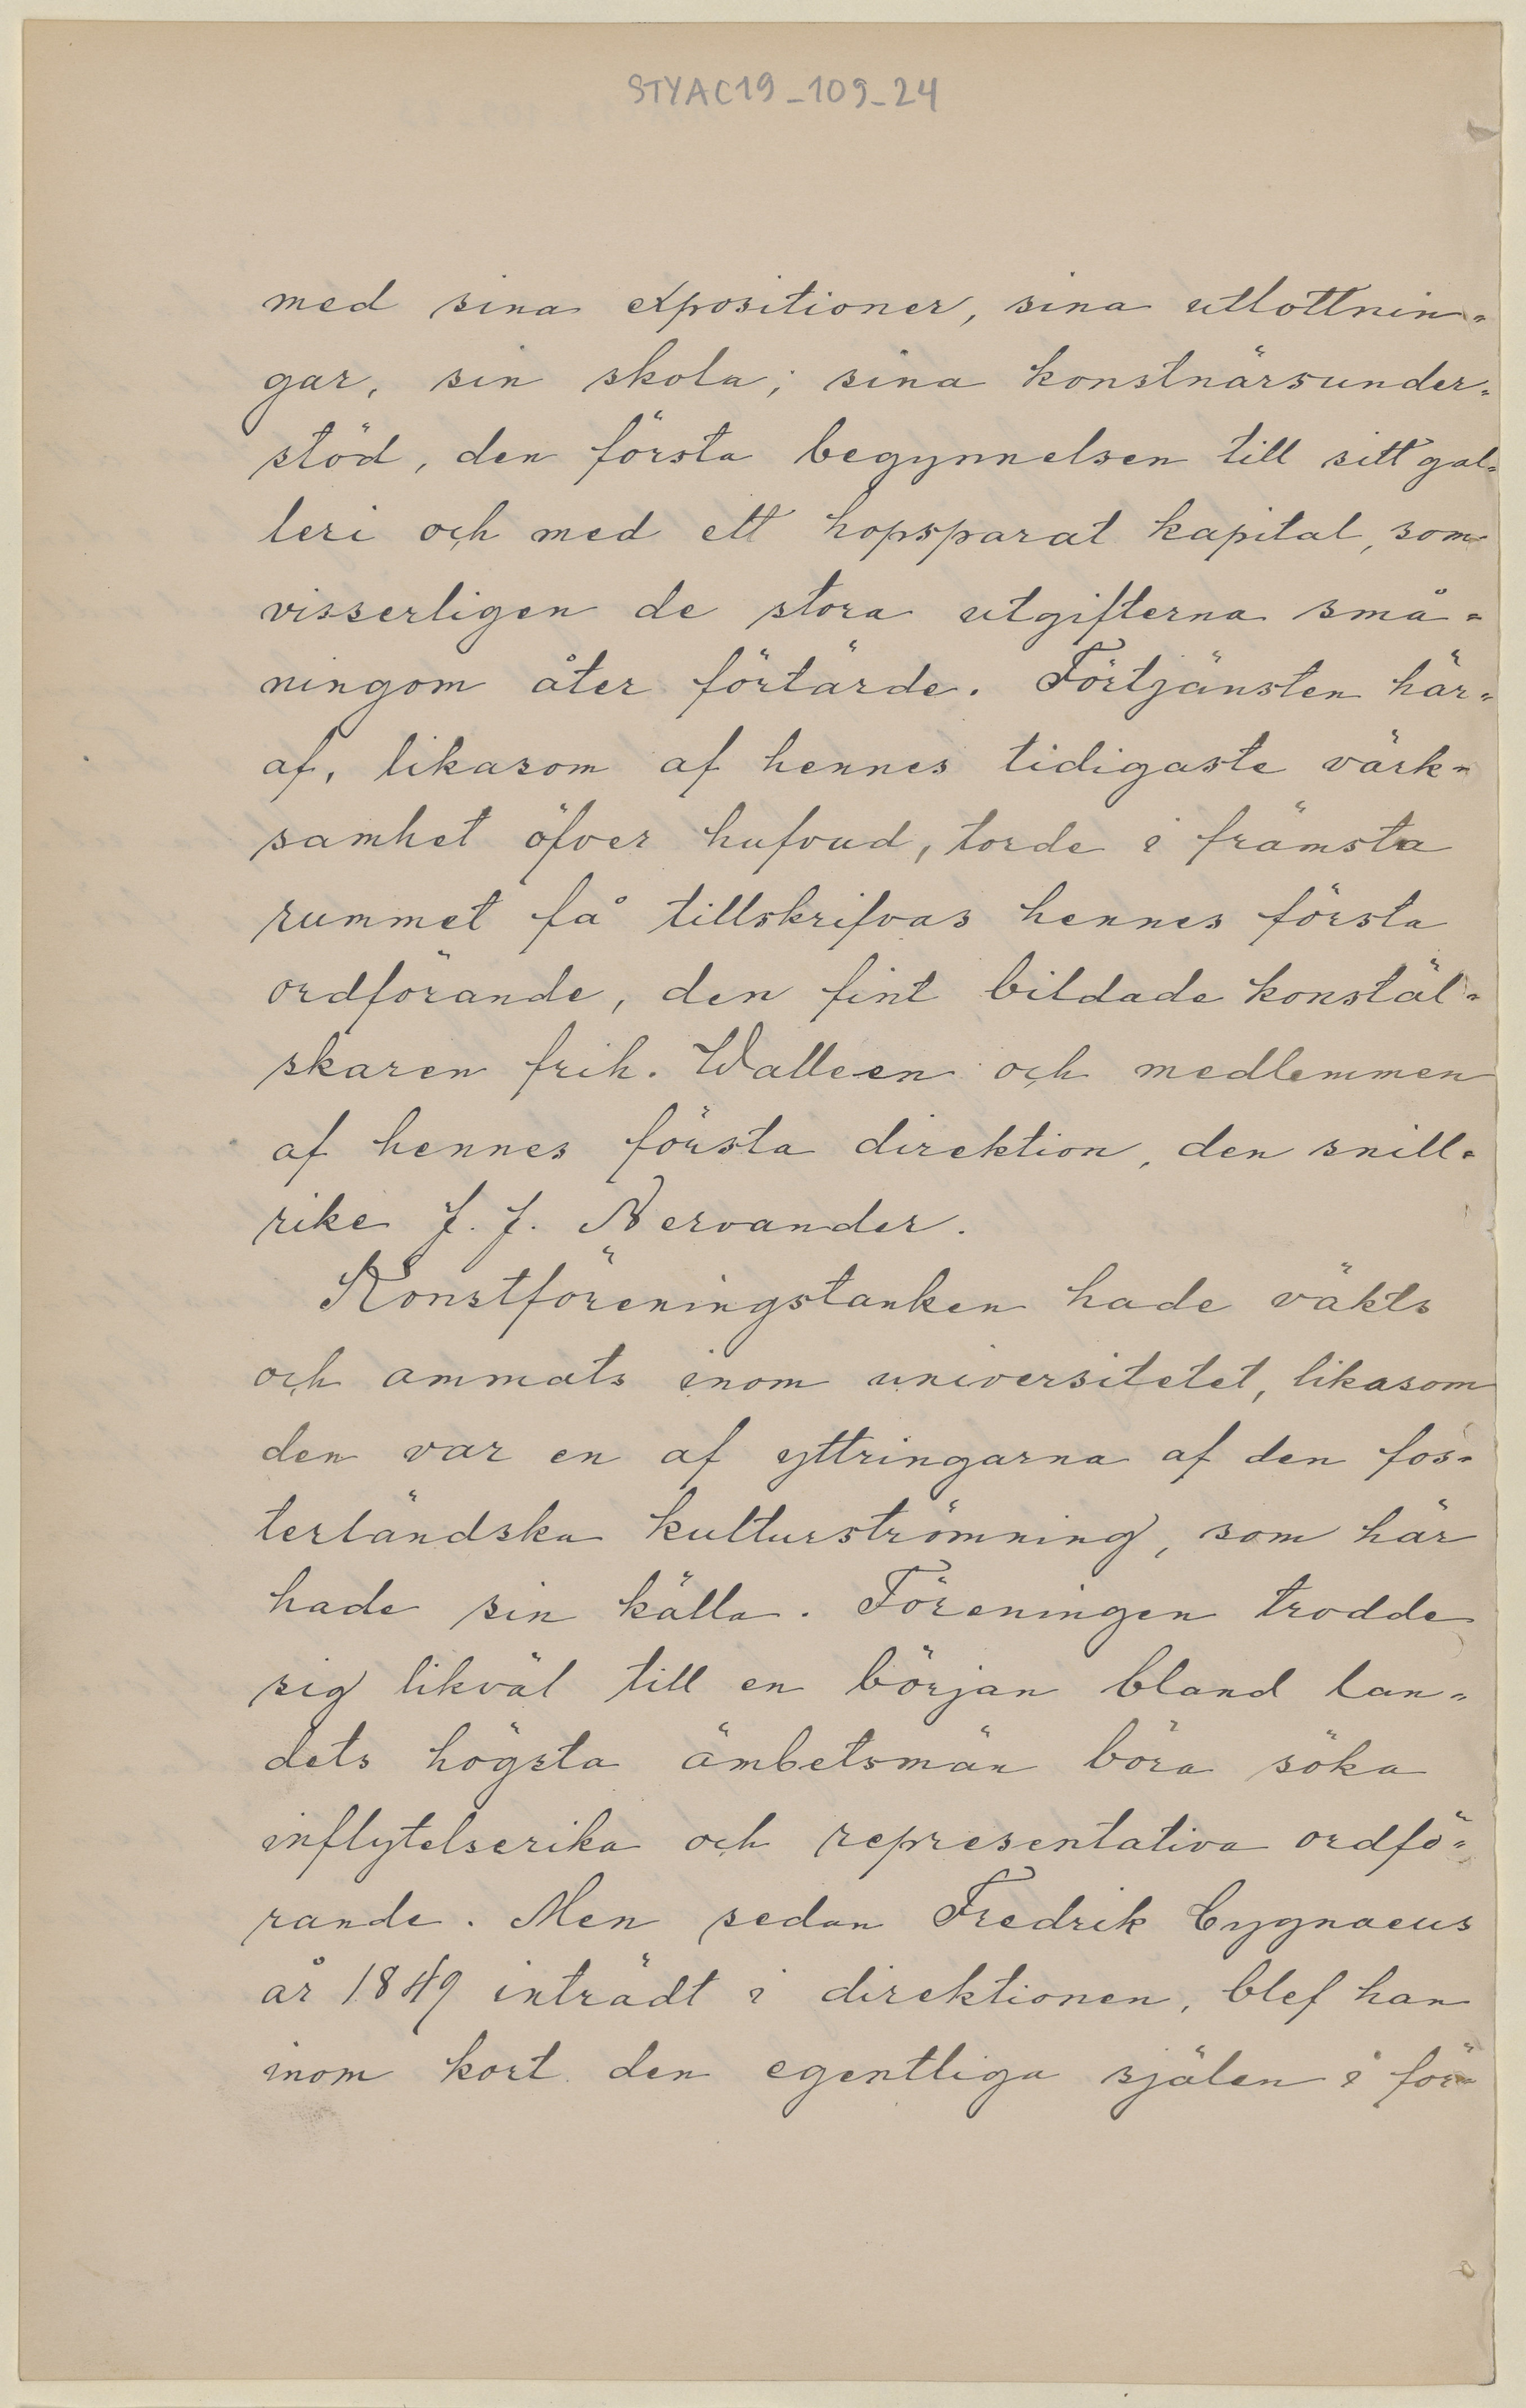 STYAC19_109_24
med sina expositioner, sina utlottnin-
gar, sin skola, sina konstnärsunder-
stöd, den första begynnelsen till sitt gal-
leri och med ett hopsparat kapital, som
visserligen de stora utgifterna små-
ningom åter förtärde. Förtjänsten här-
af, likasom af hennes tidigaste värk-
samhet öfver hufvud, torde i främsta
rummet få tillskrifvas hennes första
ordförande, den fint bildade konstäl-
skaren frih. Walleen och medlemmen
af hennes första direktion, den snill-
rike J. J. Nervander.
Konstföreningstanken hade väkts
och ammats inom universitetet, likasom
den var en af yttringarna af den fos-
terländska kulturströmning, som här
hade sin källa. Föreningen trodde
sig likväl till en början bland lan-
dets högsta ämbetsmän böra söka
inflytelserika och representativa ordfö-
rande. Men sedan Fredrik Cygnaeus
år 1849 inträdt i direktionen, blef han
inom kort den egentliga själen i för-